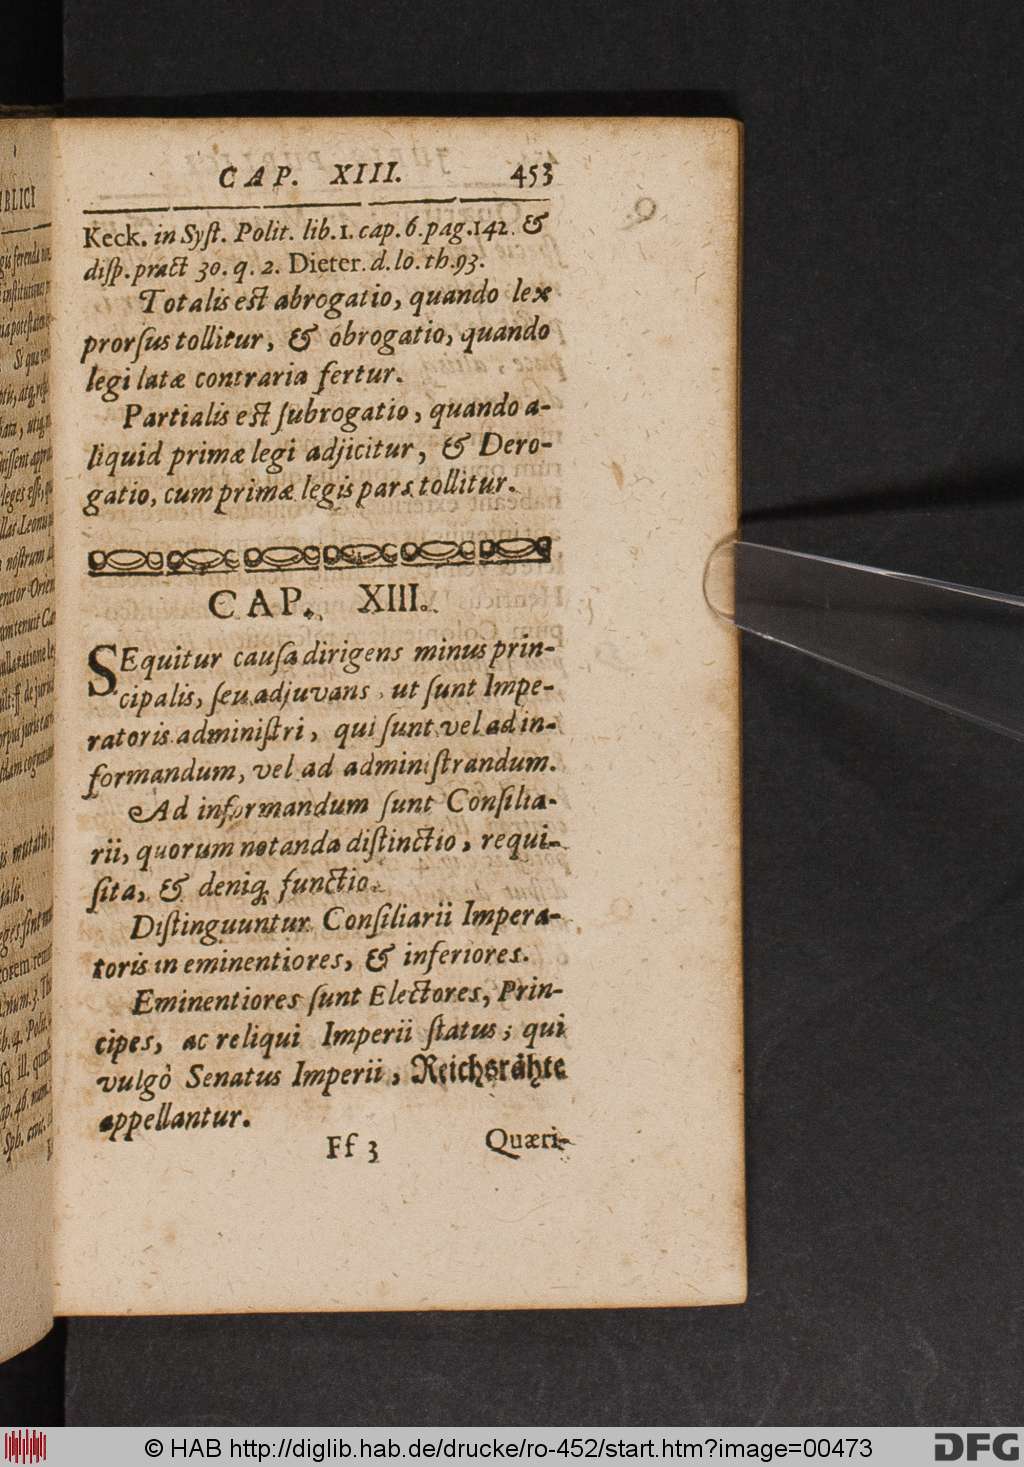 CAP. XIII. 453
Keck. in Syſt. Polit. lib. 1. cap. 6. pag. 142. &
diſp. pract 30. q. 2. Dieter. d. lo. th. 93.
Totalis est abrogatio, quando lex
prorſus tollitur, & obrogatio, quando
legi latæ contraria fertur.
Partialis est ſubrogatio, quando a-
liquid primæ legi adjicitur, & Dero-
gatio, cum primæ legis pars tollitur.
CAP. XIII.
SEquitur cauſa dirigens minus prin-
cipalis, ſeu adjuvans, ut ſunt Impe-
ratoris adminiſtri, qui ſunt vel ad in-
formandum, vel ad adminiſtrandum.
Ad informandum ſunt Conſilia-
rii, quorum notanda diſtinctio, requi-
ſita, & deniq; functio.
Diſtinguuntur Conſiliarii Impera-
toris in eminentiores, & inferiores.
Eminentiores ſunt Electores, Prin-
cipes, ac reliqui Imperii ſtatus; qui
vulgò Senatus Imperii, Reichsrähte
appellantur.
Ff 3 Quæri-
© HAB http://diglib.hab.de/drucke/ro-452/start.htm?image=00473
DFG